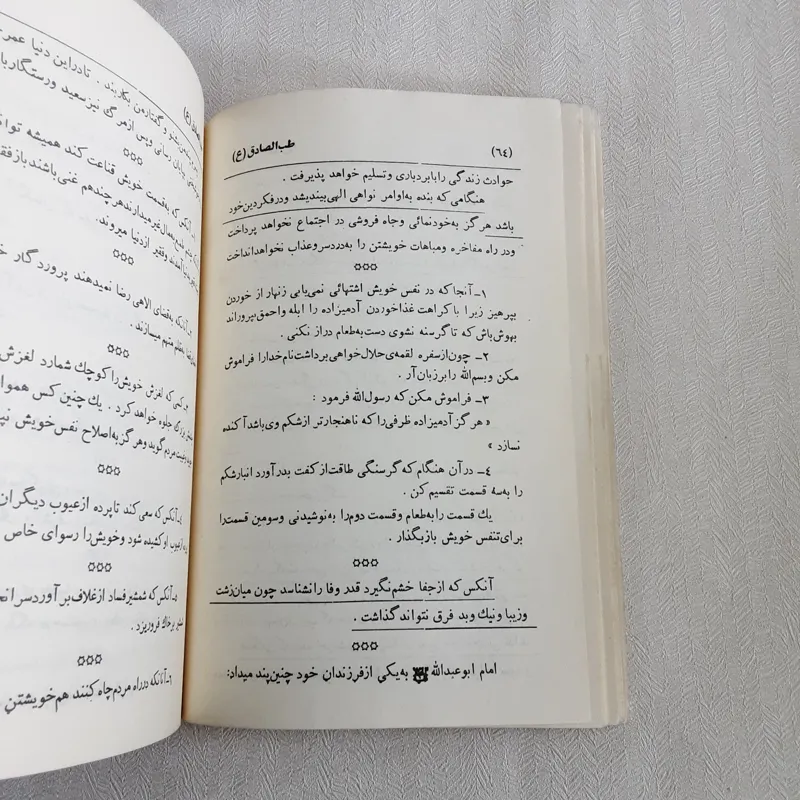 (٦٤)
طب‌الصادق (ع)
حوادث زندگی را بابردباری وتسلیم خواهد پذیرفت .
هنگامی که بنده به‌اوامر نواهی الهی‌بیندیشد ودرفکردین‌خود
باشد هرگز به‌خودنمائی وجاه فروشی در اجتماع نخواهد پرداخت
ودر راه مفاخره ومباهات خویشتن را به‌دردسروعذاب نخواهدانداخت
***
۱ـ آنجاکه در نفس خویش اشتهائی نمی‌یابی زنهار از خوردن
بپرهیز زیرا با کراهت غذاخوردن آدمیزاده را ابله واحمق‌بپروراند
بهوش‌باش که تاگرسنه نشوی دست‌به‌طعام دراز نکنی .
۲ـ چون‌ازسفره لقمه‌ی‌حلال‌خواهی‌برداشت‌نام‌خدارا فراموش
مکن وبسم‌الله را برزبان‌آر .
۳ـ فراموش مکن که رسول‌الله فرمود :
« هرگز آدمیزاده ظرفی‌را که ناهنجارتر ازشکم وی‌باشدآکنده
نسازد »
٤ـ درآن هنگام که گرسنگی طاقت‌از کفت بدرآورد انبارشکم
را به‌سه قسمت تقسیم کن .
یك قسمت رابه‌طعام وقسمت دوم‌رابه‌نوشیدنی وسومین قسمت‌را
برای‌تنفس خویش بازبگذار .
***
آنکس که ازجفا خشم‌نگیرد قدر وفا رانشناسد چون میان‌زشت
وزیبا ونیك وبد فرق نتواند گذاشت .
***
امام ابوعبدالله به‌یکی ازفرزندان خود چنین‌پند میداد:
و گفتارمن بکاربند . تادراین دنیا عمر
پایان رسانی وپس ازمرگ نیزسعید ورستگار
***
آنکس که بقسمت خویش قناعت کند همیشه
هرچندهم غنی‌باشند
وفقیر ازدنیا میروند.
***
بقضای الاهی رضا نمیدهند پرورد گار
متهم میسازند.
***
کسی که لغزش خویش‌را کوچك شمارد لغزش
بزرگ جلوه خواهد کرد . یك چنین کس
مردم گوید وهرگز به‌اصلاح نفس خویش
***
آنکس که سعی کند تاپرده ازعیوب دیگران
ازعیوب او کشیده شود وخویش‌را رسوای خاص
***
٥ـ آنکس که شمشیرفساد ازغلاف برآورد
برخاك فروریزد.
***
٦ـ آنانکه درراه مردم‌چاه کنند هم‌خویشتن